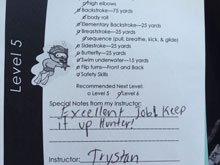 high elbows
Backstroke—75 yards
body roll
Elementary Backstroke—25 yards
Breaststroke—25 yards
sequence (pull, breathe, kick, & glide)
Sidestroke—25 yards
Butterfly—25 yards
Swim underwater—15 yards
Flip turns—Front and Back
Safety Skills
Level 5
Recommended Next Level:
Level 5
Level 6
Special Notes from my Instructor:
Excellent Job! Keep
it up Hunter!
Instructor: Trystan